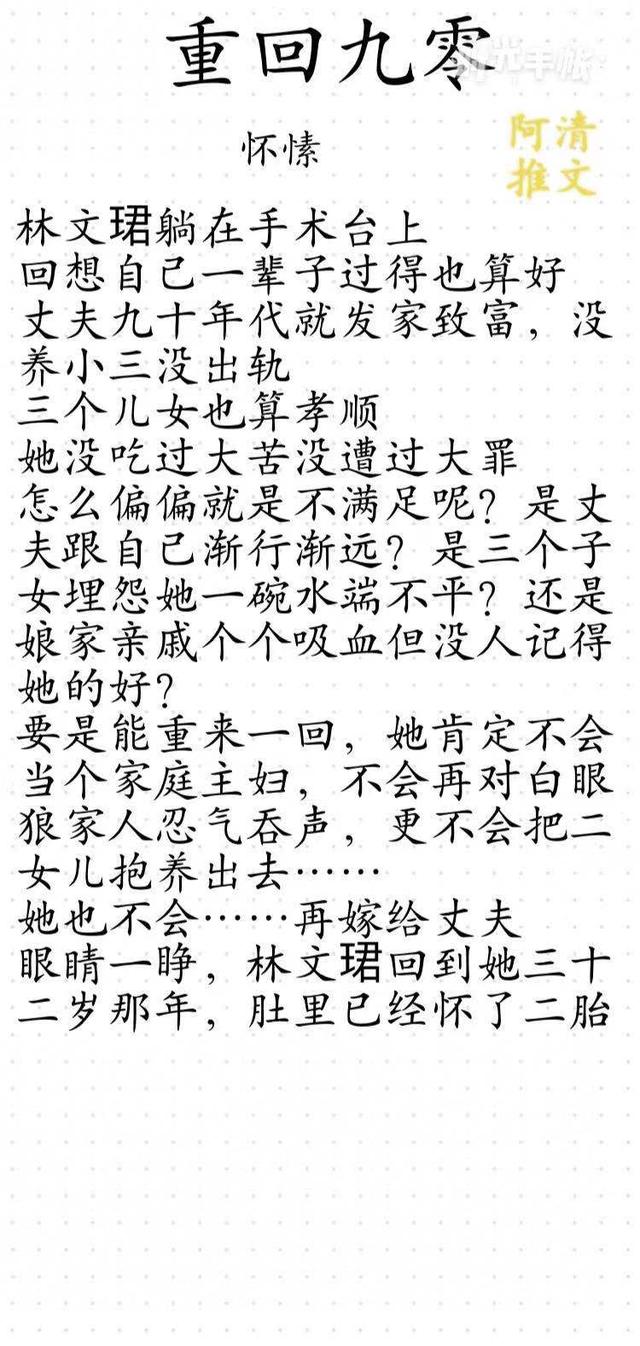 重回九零
时光手帐
怀愫
阿清
推文
林文珺躺在手术台上
回想自己一辈子过得也算好
丈夫九十年代就发家致富，没
养小三没出轨
三个儿女也算孝顺
她没吃过大苦没遭过大罪
怎么偏偏就是不满足呢？是丈
夫跟自己渐行渐远？是三个子
女埋怨她一碗水端不平？还是
娘家亲戚个个吸血但没人记得
她的好？
要是能重来一回，她肯定不会
当个家庭主妇，不会再对白眼
狼家人忍气吞声，更不会把二
女儿抱养出去……
她也不会……再嫁给丈夫
眼睛一睁，林文珺回到她三十
二岁那年，肚里已经怀了二胎